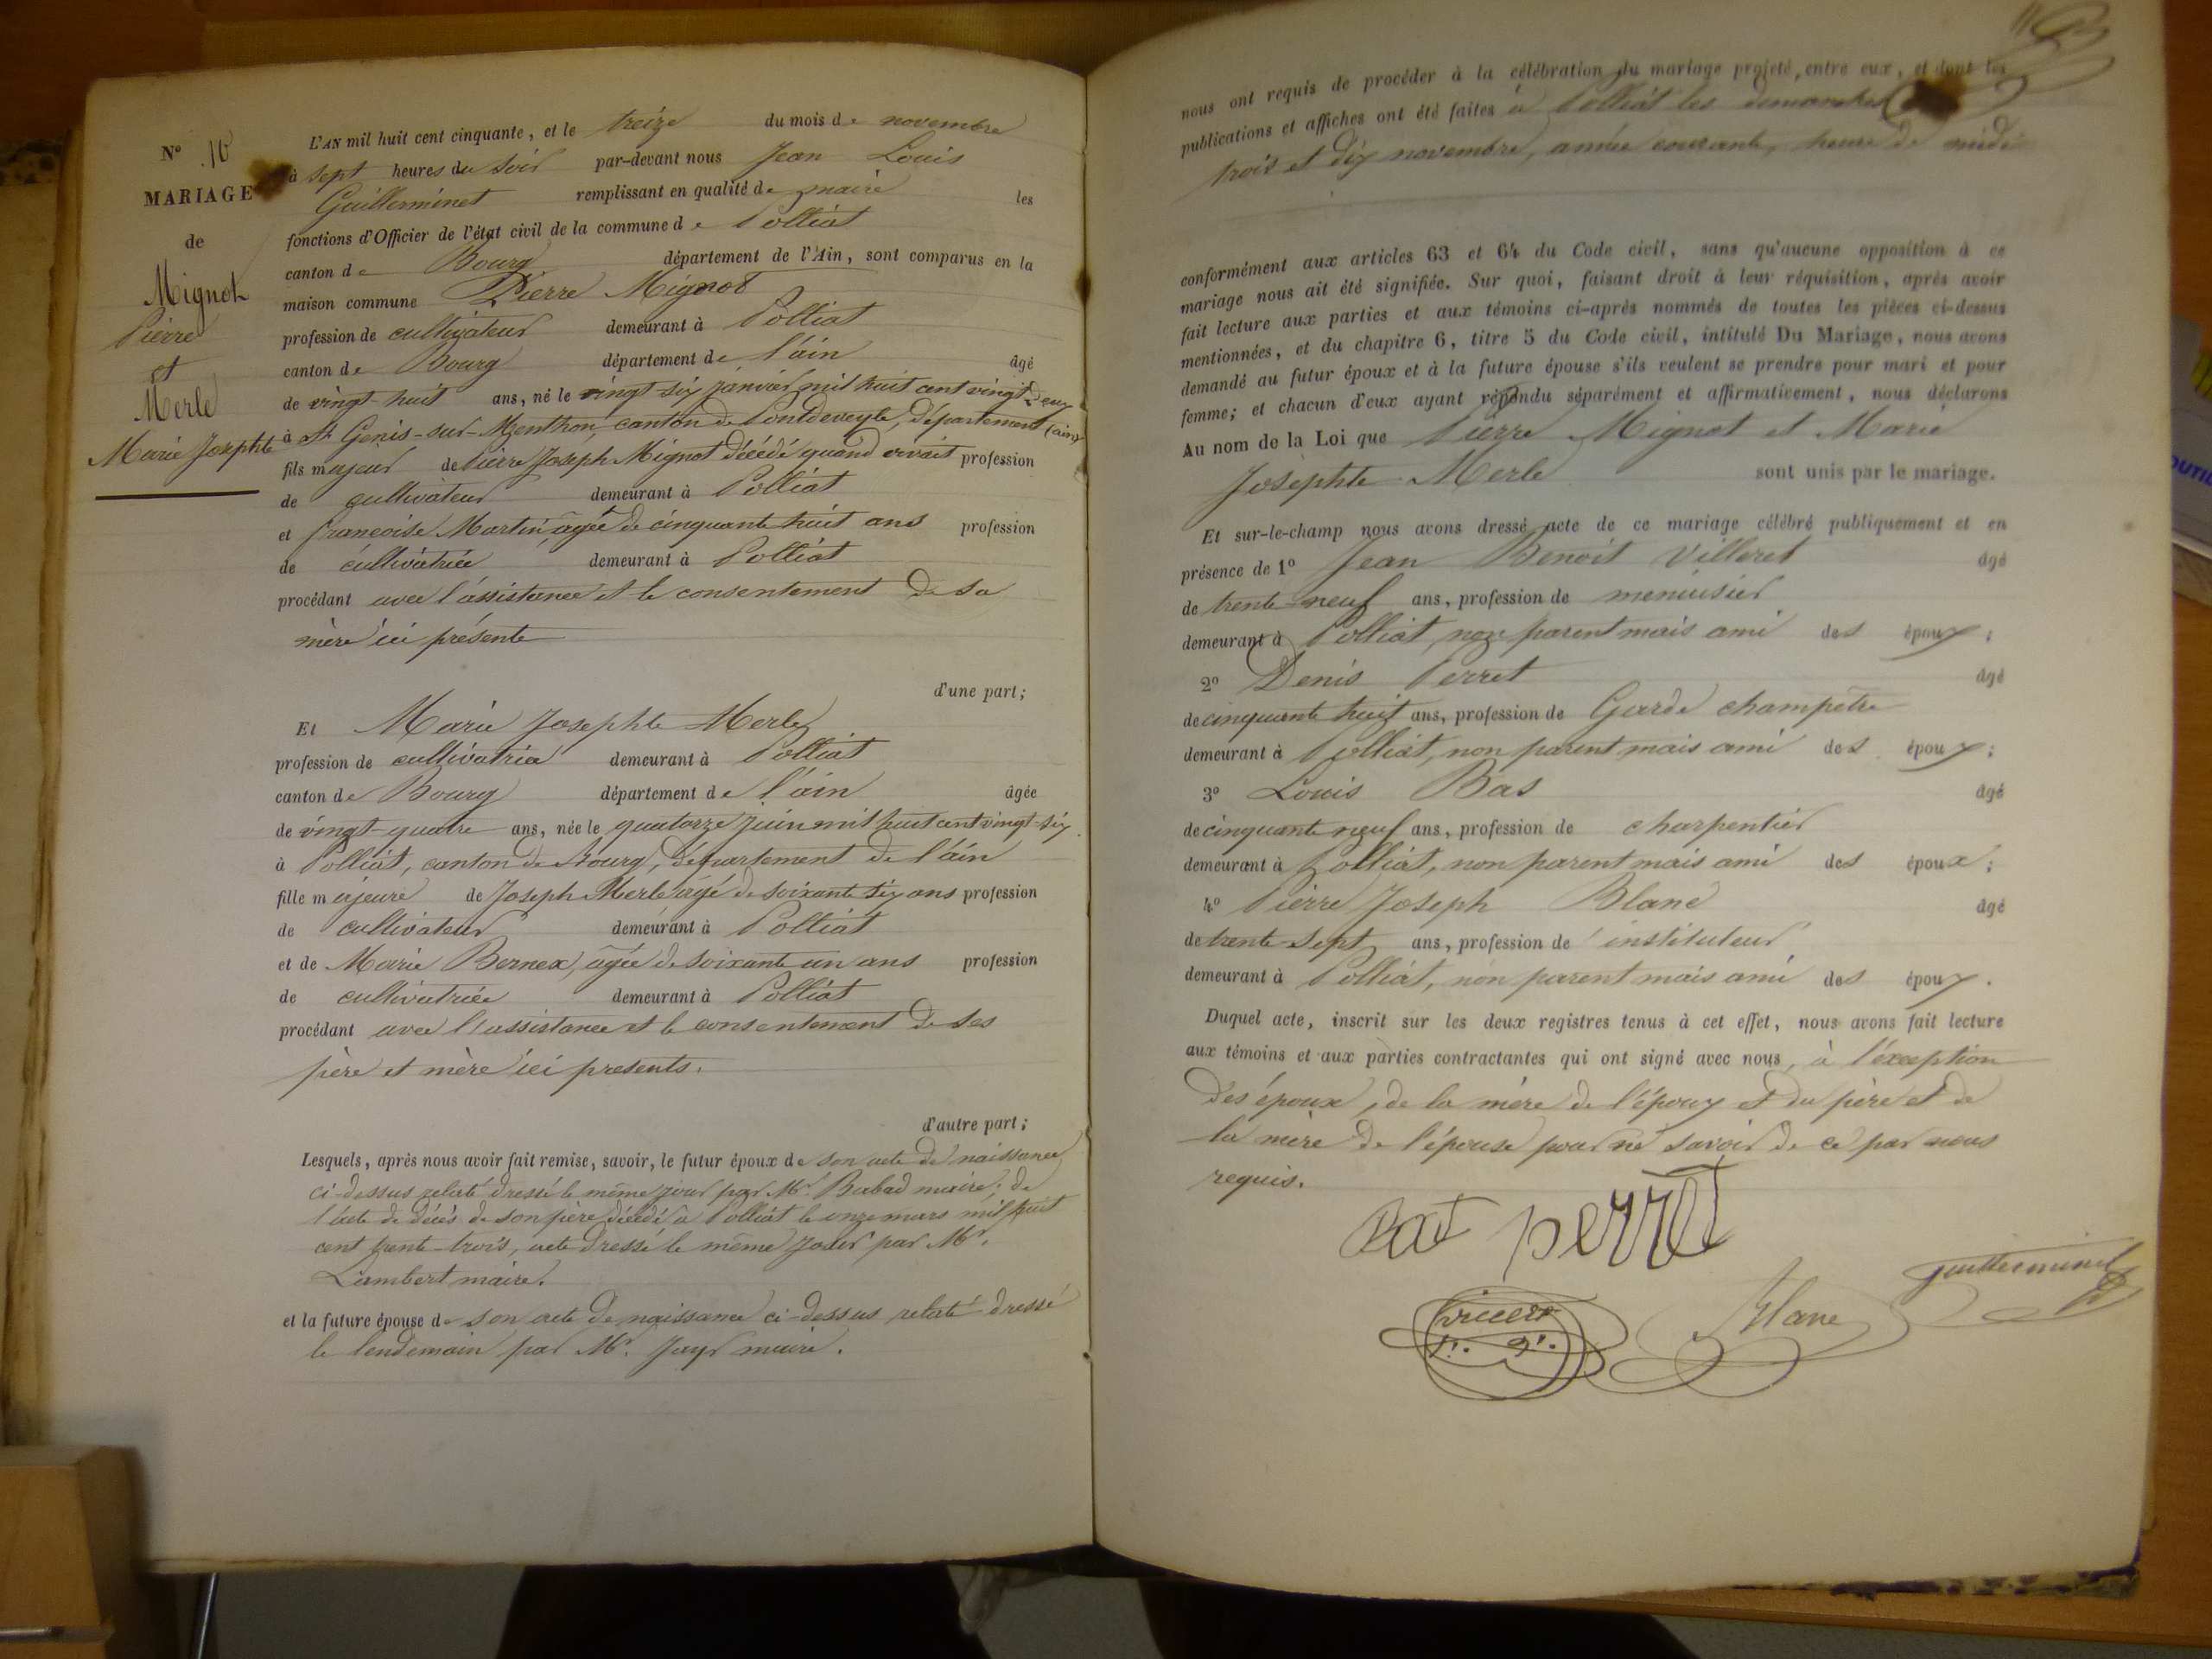 N° 10
MARIAGE
de
Mignot
Pierre
et
Merle
Marie Josephte
L'AN mil huit cent cinquante, et le treize du mois de novembre
à sept heures du soir par-devant nous Jean Louis
Guillerminet remplissant en qualité de maire les
fonctions d'Officier de l'état civil de la commune de Polliat
canton de Bourg département de l'Ain, sont comparus en la
maison commune Pierre Mignot
profession de cultivateur demeurant à Polliat
canton de Bourg département de l'ain âgé
de vingt-huit ans, né le vingt-six janvier mil huit cent vingt-deux
à St Genis-sur-Menthon, canton de Pontdeveyle, département (ain)
fils majeur de Pierre Joseph Mignot décédé quand vivait profession
de cultivateur demeurant à Polliat
et francoise Martin, agée de cinquante huit ans profession
de cultivatrice demeurant à Polliat
procédant avec l'assistance et le consentement de sa
mère ici présente
d'une part;
Et Marie Josephte Merle
profession de cultivatrice demeurant à Polliat
canton de Bourg département de l'ain âgée
de vingt-quatre ans, née le quatorze juin mil huit cent vingt-six
à Polliat, canton de Bourg, département de l'ain
fille majeure de Joseph Merle agé de soixante six ans profession
de cultivateur demeurant à Polliat
et de Marie Bernex, agée de soixante un ans profession
de cultivatrice demeurant à Polliat
procédant avec l'assistance et le consentement de ses
père et mère ici presents.
d'autre part;
Lesquels, après nous avoir fait remise, savoir, le futur époux de son acte de naissance
ci-dessus relaté dressé le même jour par Mr. Babad maire; de
l'acte de décès de son père décédé à Polliat le onze mars mil huit
cent trente-trois, acte dressé le même jour par Mr.
Lambert maire.
et la future épouse de son acte de naissance ci-dessus relaté dressé
le lendemain par Mr. Jayr maire.
nous ont requis de procéder à la célébration du mariage projeté, entre eux, et dont les
publications et affiches ont été faites à Polliat les dimanches
trois et dix novembre, année courante, heure de midi
conformément aux articles 63 et 64 du Code civil, sans qu'aucune opposition à ce
mariage nous ait été signifiée. Sur quoi, faisant droit à leur réquisition, après avoir
fait lecture aux parties et aux témoins ci-après nommés de toutes les pièces ci-dessus
mentionnées, et du chapitre 6, titre 5 du Code civil, intitulé Du Mariage, nous avons
demandé au futur époux et à la future épouse s'ils veulent se prendre pour mari et pour
femme; et chacun d'eux ayant répondu séparément et affirmativement, nous déclarons
Au nom de la Loi que Pierre Mignot et Marie
Josephte Merle sont unis par le mariage.
Et sur-le-champ nous avons dressé acte de ce mariage célébré publiquement et en
présence de 1° Jean Benoit Villeret âgé
de trente-neuf ans, profession de menuisier
demeurant à Polliat, non parent mais ami des époux;
2° Denis Perret âgé
de cinquante huit ans, profession de Garde champetre
demeurant à Polliat, non parent mais ami des époux;
3° Louis Bas âgé
de cinquante neuf ans, profession de charpentier
demeurant à Polliat, non parent mais ami des époux;
4° Pierre Joseph Blanc âgé
de trente-sept ans, profession de instituteur
demeurant à Polliat, non parent mais ami des époux.
Duquel acte, inscrit sur les deux registres tenus à cet effet, nous avons fait lecture
aux témoins et aux parties contractantes qui ont signé avec nous, à l'exception
des époux, de la mère de l'époux et du père et de
la mère de l'épouse pour ne savoir de ce par nous
requis.
perret
Blanc
guillerminet